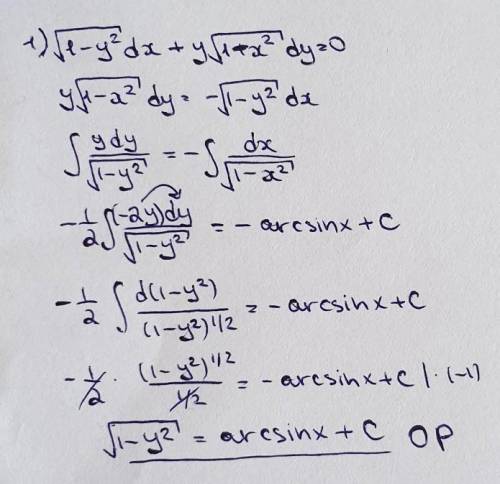 1) √(1-y²) dx + y√(1-x²) dy = 0
y√(1-x²) dy = -√(1-y²) dx
∫ y dy / √(1-y²) = -∫ dx / √(1-x²)
-1/2 ∫ (-2y) dy / √(1-y²) = -arcsin x + C
-1/2 ∫ d(1-y²) / (1-y²)^1/2 = -arcsin x + C
-1/2 · (1-y²)^1/2 / 1/2 = -arcsin x + C | · (-1)
√(1-y²) = arcsin x + C OP